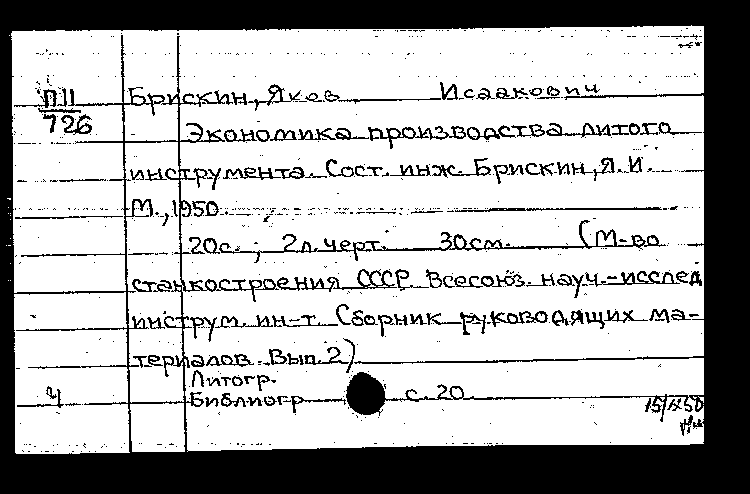 П11 Брискин, Яков Исаакович
726
Экономика производства литого
инструмента. Сост. инж. Брискин, Я. И.
М., 1950.
20с.; 2л. черт. 30см. (М-во
станкостроения СССР. Всесоюз. науч.-исслед
инструм. ин-т. Сборник руководящих ма-
териалов. Вып. 2)
Литогр.
Библиогр с. 20.
15/IX50